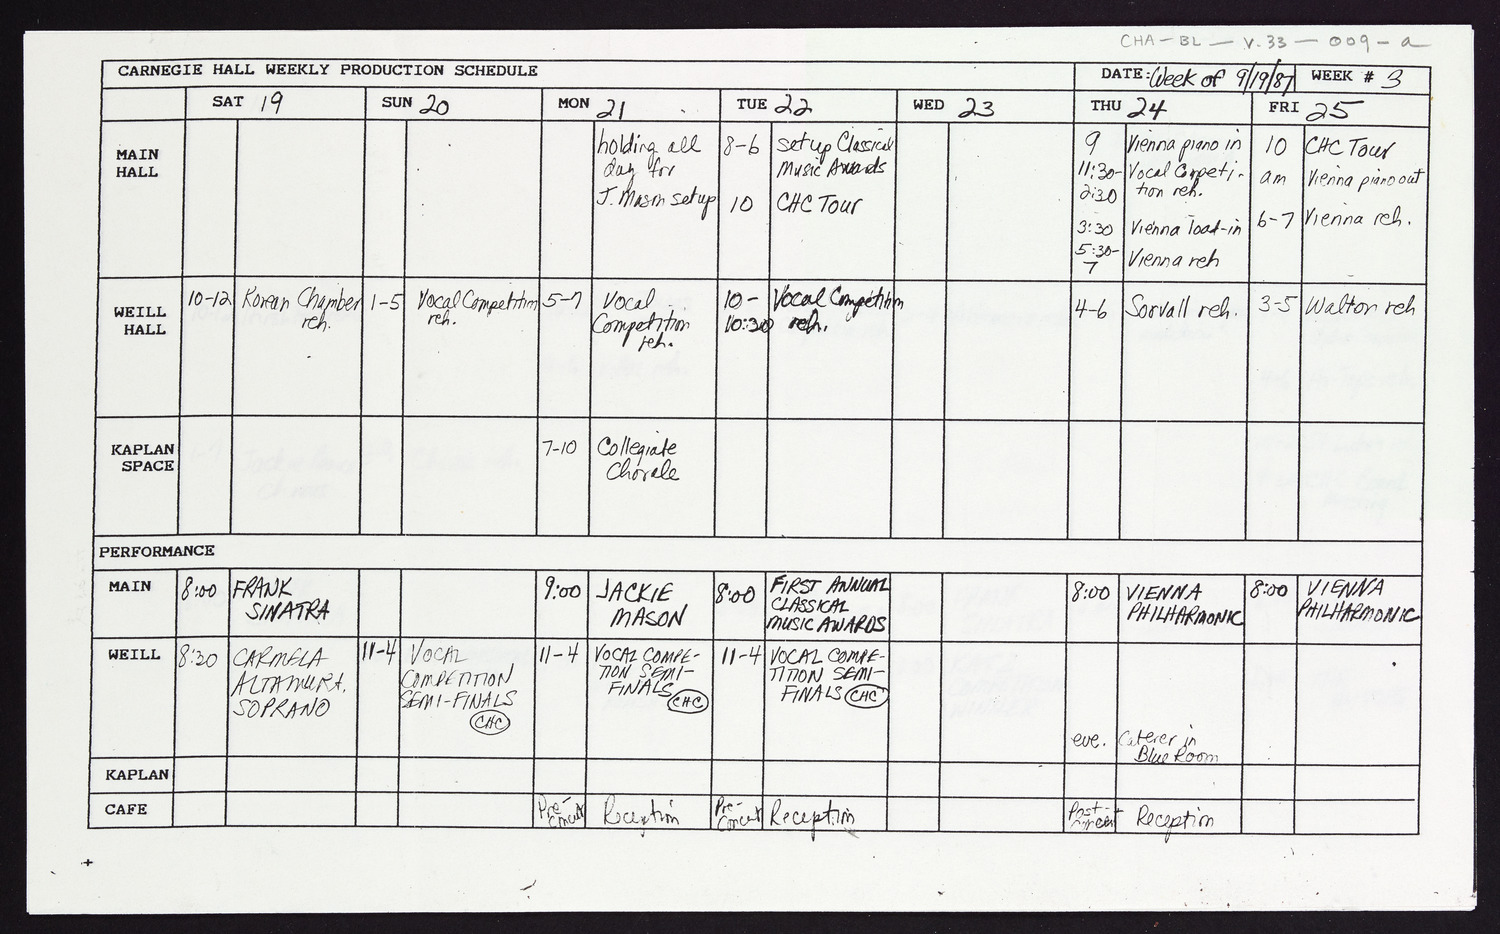 CHA-BL-V.33-009-a
CARNEGIE HALL WEEKLY PRODUCTION SCHEDULE
DATE: Week of 9/19/87 WEEK # 3
SAT 19 SUN 20 MON 21 TUE 22 WED 23 THU 24 FRI 25
MAIN HALL
holding all
day for
J. Mason setup
8-6 setup Classical
Music Awards
10 CHC Tour
9 Vienna piano in
11:30-
2:30 Vocal Competi-
tion reh.
3:30 Vienna load-in
5:30-
7 Vienna reh
10 CHC Tour
am Vienna piano out
6-7 Vienna reh.
WEILL HALL
10-12 Korean Chamber
reh.
1-5 Vocal Competition
reh.
5-7 Vocal
Competition
reh.
10-
10:30 Vocal Competition
reh.
4-6 Sorvall reh.
3-5 Walton reh
KAPLAN SPACE
7-10 Collegiate
Chorale
PERFORMANCE
MAIN
8:00 FRANK
SINATRA
9:00 JACKIE
MASON
8:00 FIRST ANNUAL
CLASSICAL
MUSIC AWARDS
8:00 VIENNA
PHILHARMONIC
8:00 VIENNA
PHILHARMONIC
WEILL
8:30 CARMELA
ALTAMURA,
SOPRANO
11-4 VOCAL
COMPETITION
SEMI-FINALS
CHC
11-4 VOCAL COMPE-
TION SEMI-
FINALS CHC
11-4 VOCAL COMPE-
TITION SEMI-
FINALS CHC
eve. Caterer in
Blue Room
KAPLAN
CAFE
Pre-
Concert Reception
Pre-
Concert Reception
Post-
Concert Reception